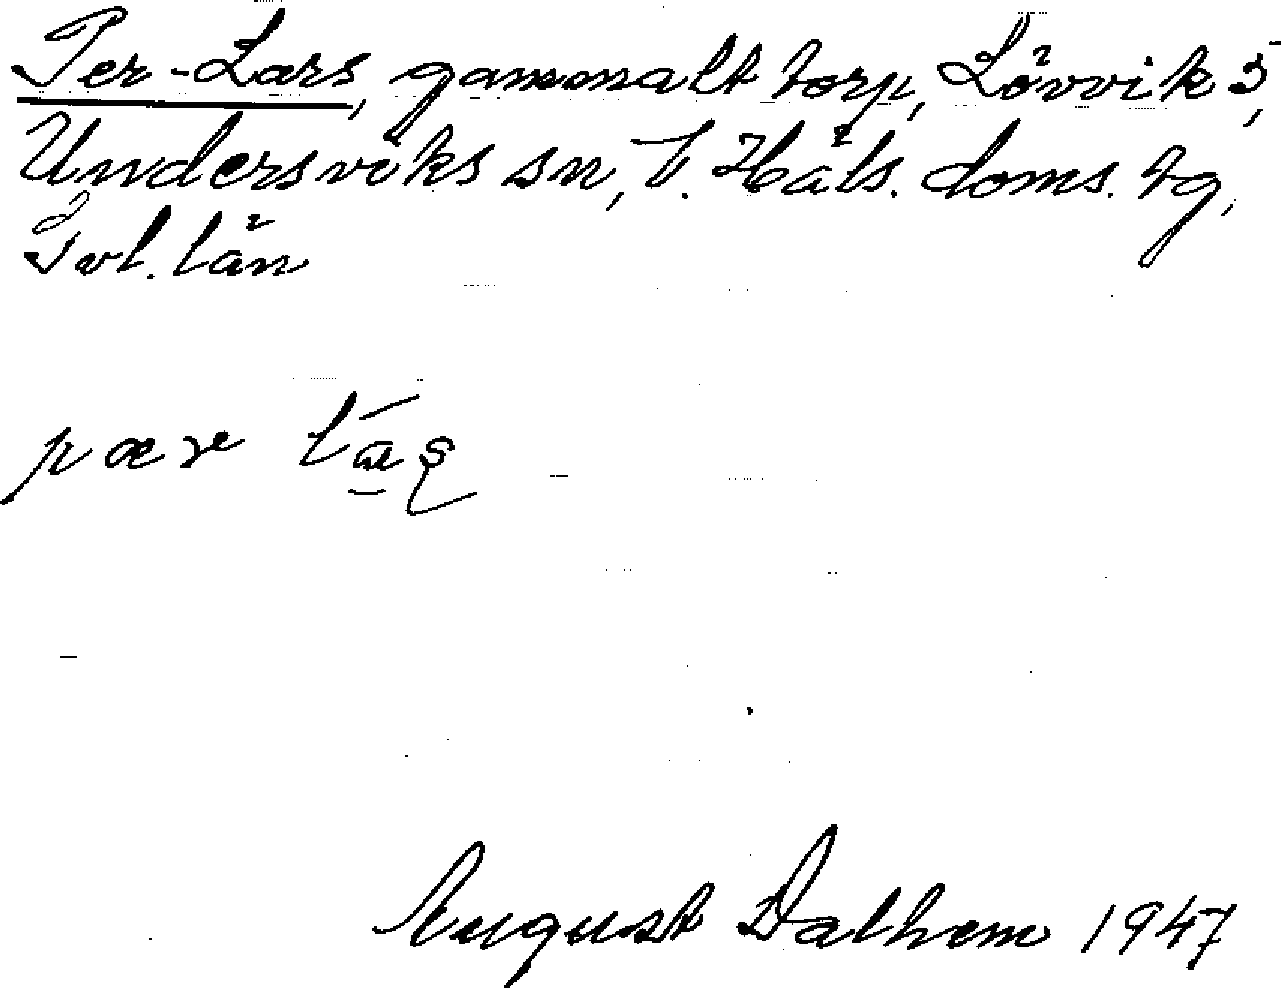 Per-Lars, gammalt torp, Lövvik 5,
Undersviks sn, V. Häls. doms. tg,
Gvl. län
pær la̱ş
August Dalhem 1947